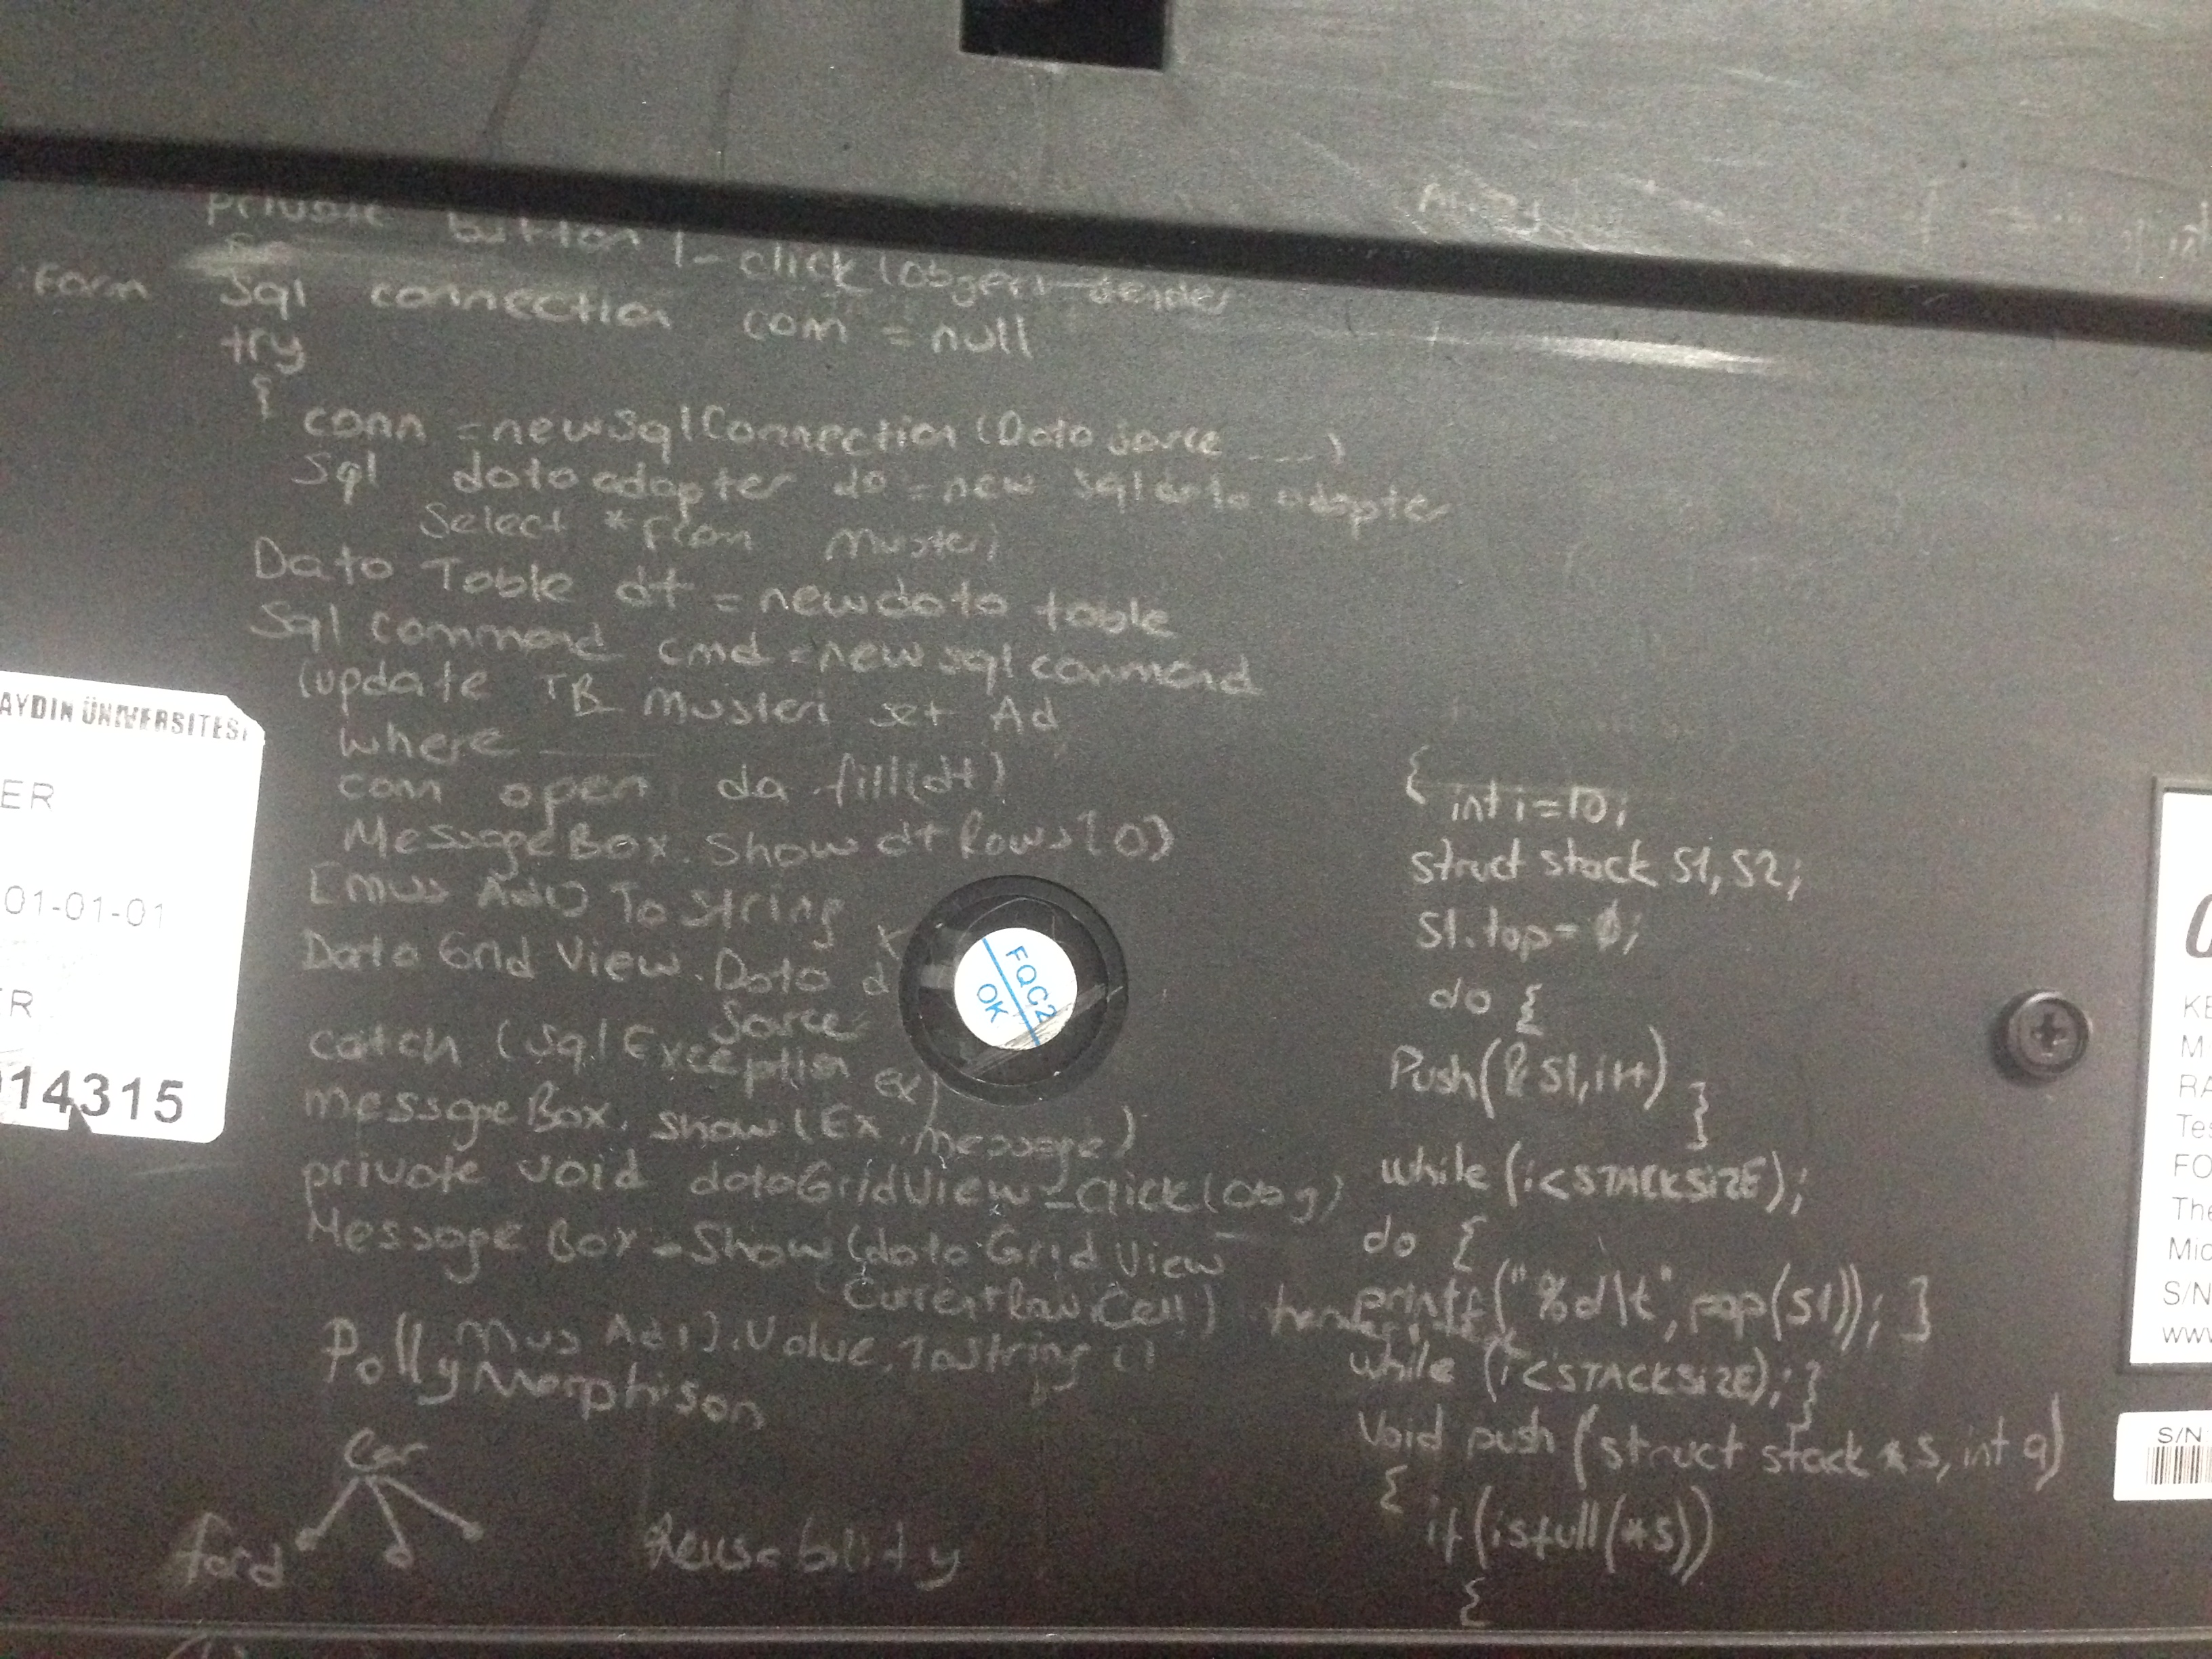 private button 1_click (obzect sender
Form Sql connection com = null
try
{
conn = new Sql Connection (Data sorce ___)
Sql data adapter da = new Sql data adapter
Select * from Musteri
Data Table dt = new data table
Sql command cmd = new sql command
(update TB Musteri set Ad
where ___
com open da fill(dt)
MessageBox. Show dt Rows [0]
[mus Adı] To String
Data Grid View. Data
Sorce
catch (Sql Exception ex)
messageBox. show (Ex. message)
private void dataGridView_Click (obg)
Message Box - Show (data Grid View
Current Row Cell)
Mus Adı).Value.ToString ()
PollyMorphison
Car
ford
Reusability
{
int i=10;
struct stack S1, S2;
S1.top = 0;
do {
Push(&S1, i++)
}
while (i<STACKSIZE);
do {
printf("%d\t", pop(S1)); }
while (i<STACKSIZE); }
Void push (struct stack *s, int a)
{
if (isfull(*s))
{
AYDIN ÜNİVERSİTESİ
ER
01-01-01
ER
14315
FQC2
OK
KE
M
RA
Tes
FO
The
Mic
S/N
www
S/N